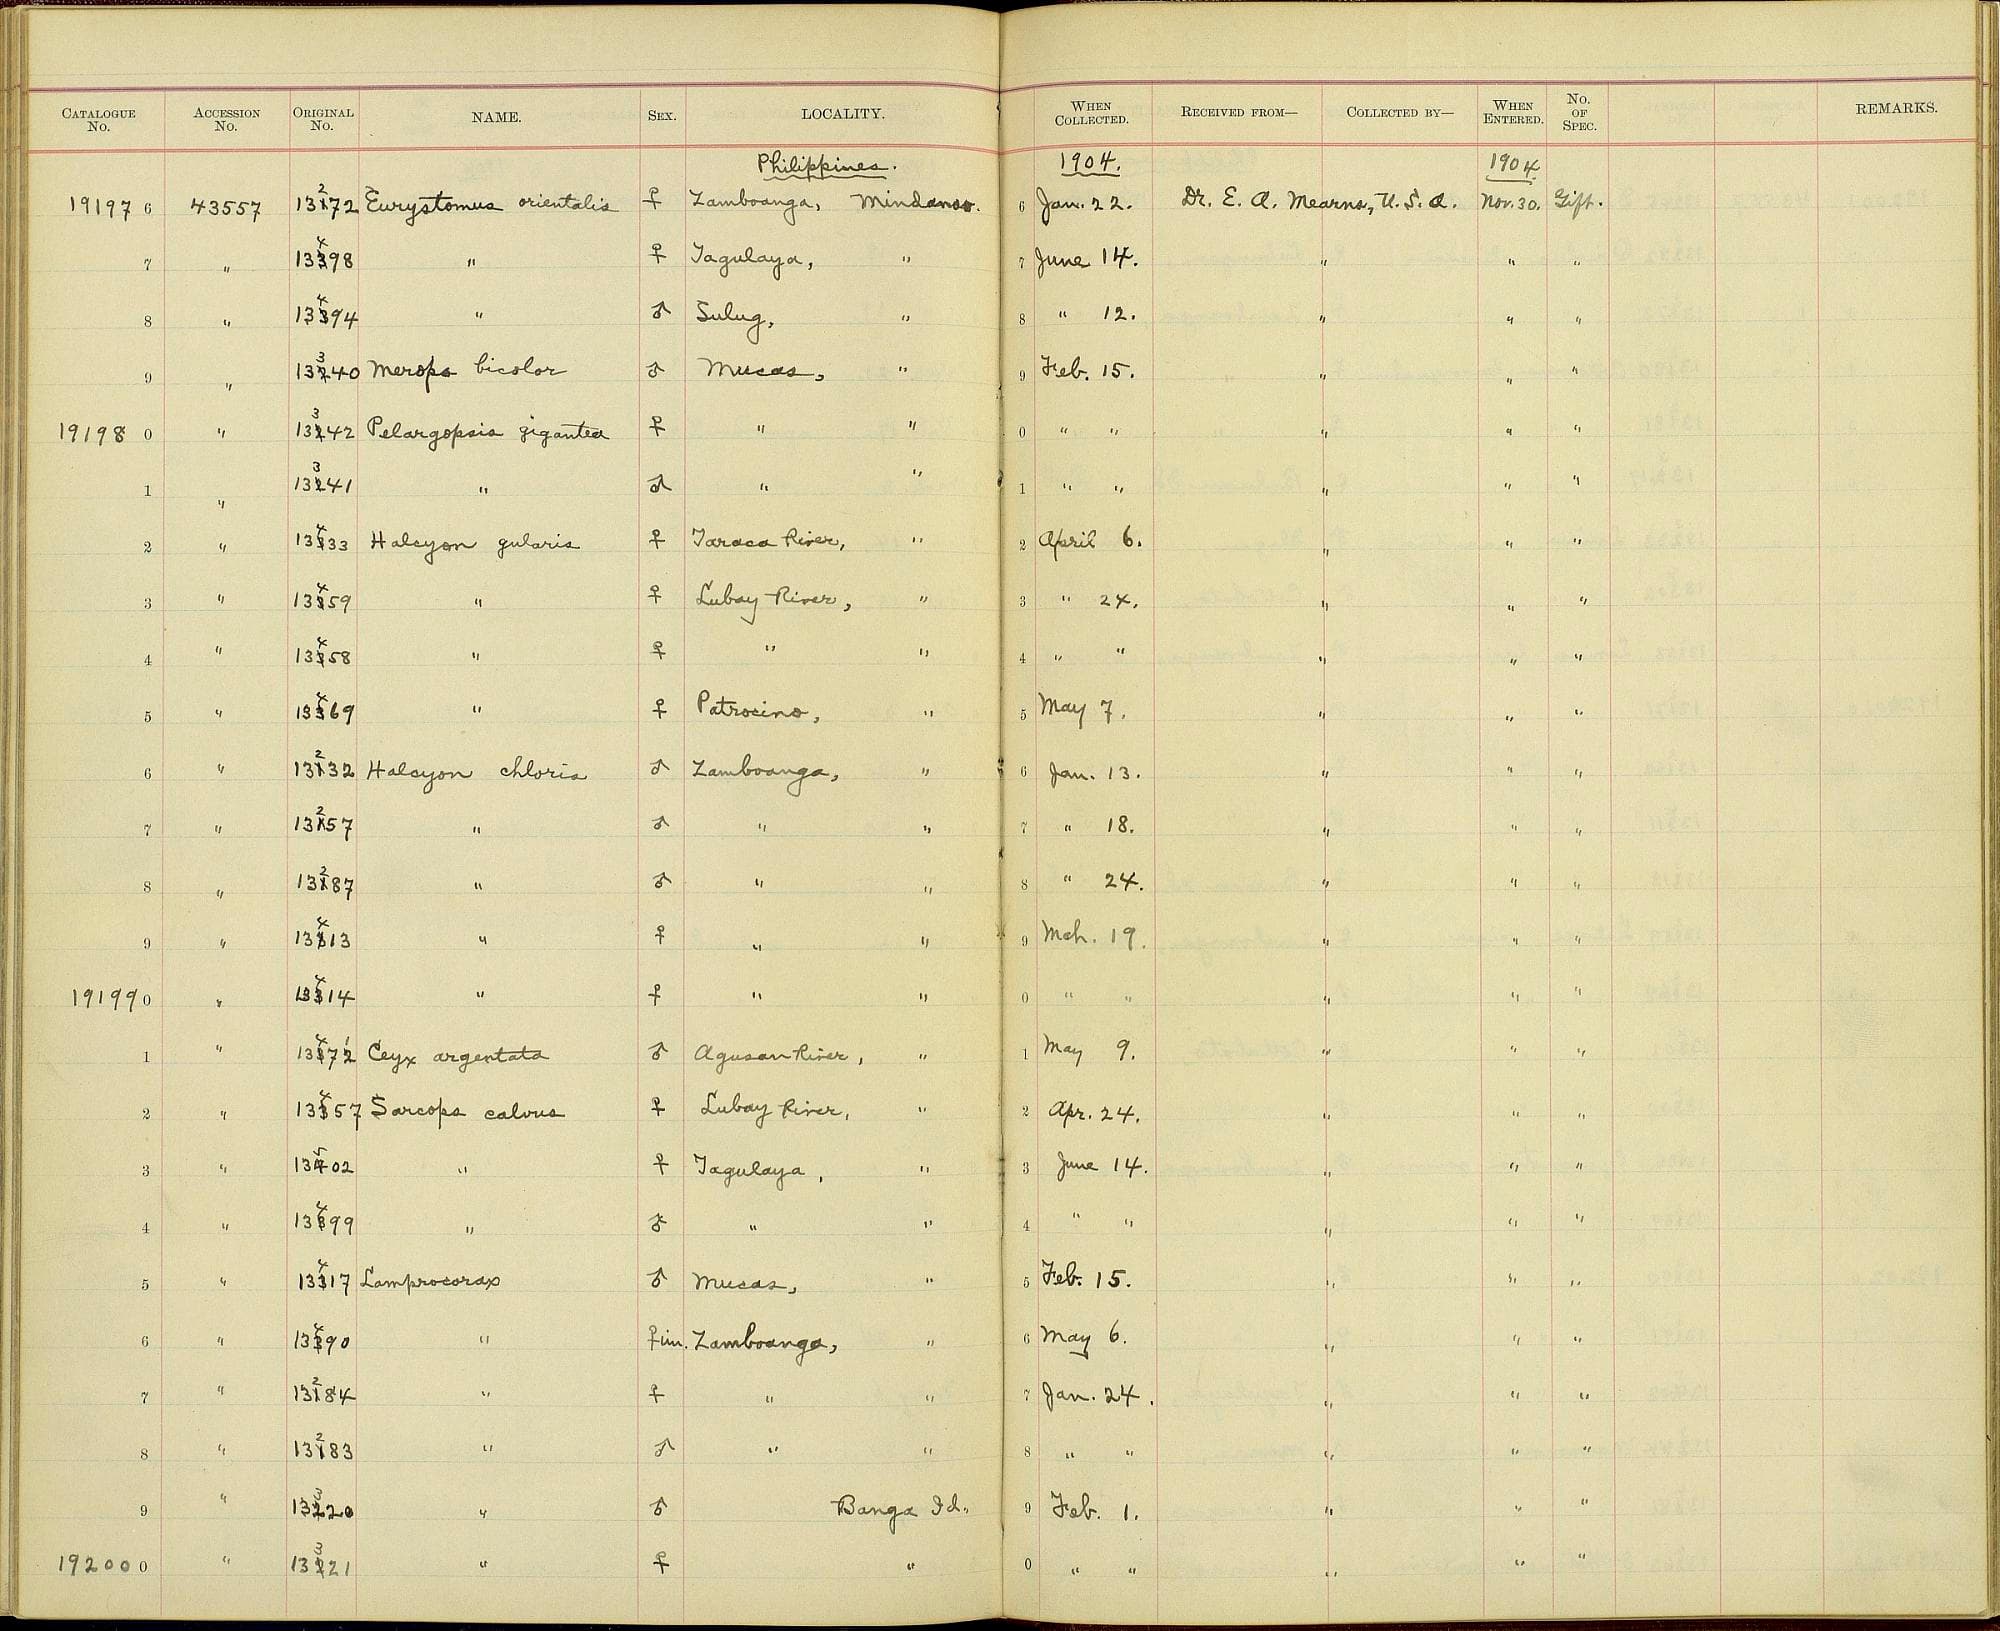 CATALOGUE No. ACCESSION No. ORIGINAL No. NAME. SEX. LOCALITY. WHEN COLLECTED. RECEIVED FROM— COLLECTED BY— WHEN ENTERED. No. OF SPEC. REMARKS.
Philippines. 1904. 1904
19197 6 43557 13272 Eurystomus orientalis ♀ Zamboanga, Mindanao. 6 Jan. 22. Dr. E. A. Mearns, U.S.A. Nov. 30. Gift.
7 " 13498 " ♀ Tagulaya, " 7 June 14. " " "
8 " 13494 " ♂ Sulug, " 8 " 12. " " "
9 " 13340 Merops bicolor ♂ Mucas, " 9 Feb. 15. " " "
19198 0 " 13342 Pelargopsis gigantea ♀ " " 0 " " " " "
1 " 13341 " ♂ " " 1 " " " " "
2 " 13433 Halcyon gularis ♀ Taraca River, " 2 April 6. " " "
3 " 13459 " ♀ Lubay River, " 3 " 24. " " "
4 " 13458 " ♀ " " 4 " " " " "
5 " 13469 " ♀ Patrocino, " 5 May 7. " " "
6 " 13232 Halcyon chloris ♂ Zamboanga, " 6 Jan. 13. " " "
7 " 13257 " ♂ " " 7 " 18. " " "
8 " 13287 " ♂ " " 8 " 24. " " "
9 " 13413 " ♀ " " 9 Mch. 19. " " "
19199 0 " 13414 " ♀ " " 0 " " " " "
1 " 13471 Ceyx argentata ♂ Agusan River, " 1 May 9. " " "
2 " 13457 Sarcops calvus ♀ Lubay River, " 2 Apr. 24. " " "
3 " 13502 " ♀ Tagulaya, " 3 June 14. " " "
4 " 13499 " ♂ " " 4 " " " " "
5 " 13417 Lamprocorax ♂ Mucas, " 5 Feb. 15. " " "
6 " 13490 " ♀ im. Zamboanga, " 6 May 6. " " "
7 " 13284 " ♀ " " 7 Jan. 24. " " "
8 " 13283 " ♂ " " 8 " " " " "
9 " 13320 " ♂ Banga Id. 9 Feb. 1. " " "
19200 0 " 13321 " ♀ " 0 " " " " "